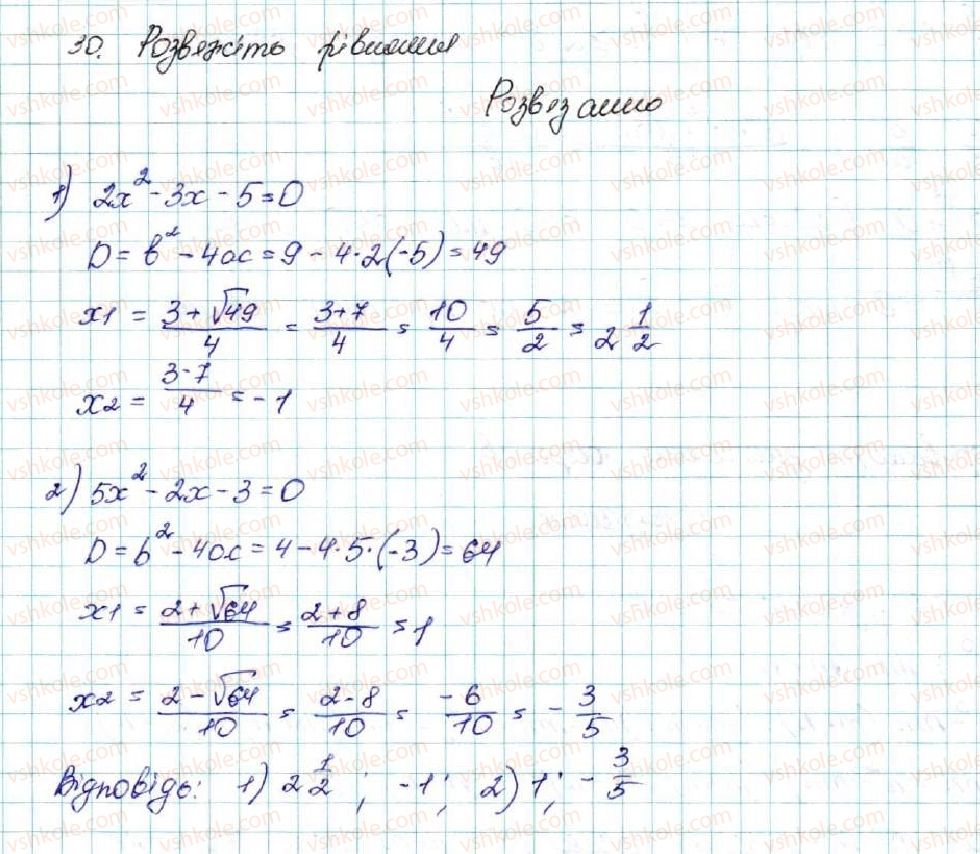 30. Розвяжіть рівняння
Розвязання
1) 2x² - 3x - 5 = 0
D = b² - 4ac = 9 - 4·2(-5) = 49
x1 = (3+√49)/4 = (3+7)/4 = 10/4 = 5/2 = 2 1/2
x2 = (3-7)/4 = -1
2) 5x² - 2x - 3 = 0
D = b² - 4ac = 4 - 4·5·(-3) = 64
x1 = (2+√64)/10 = (2+8)/10 = 1
x2 = (2-√64)/10 = (2-8)/10 = -6/10 = -3/5
Відповідь: 1) 2 1/2; -1; 2) 1; -3/5
vshkole.com